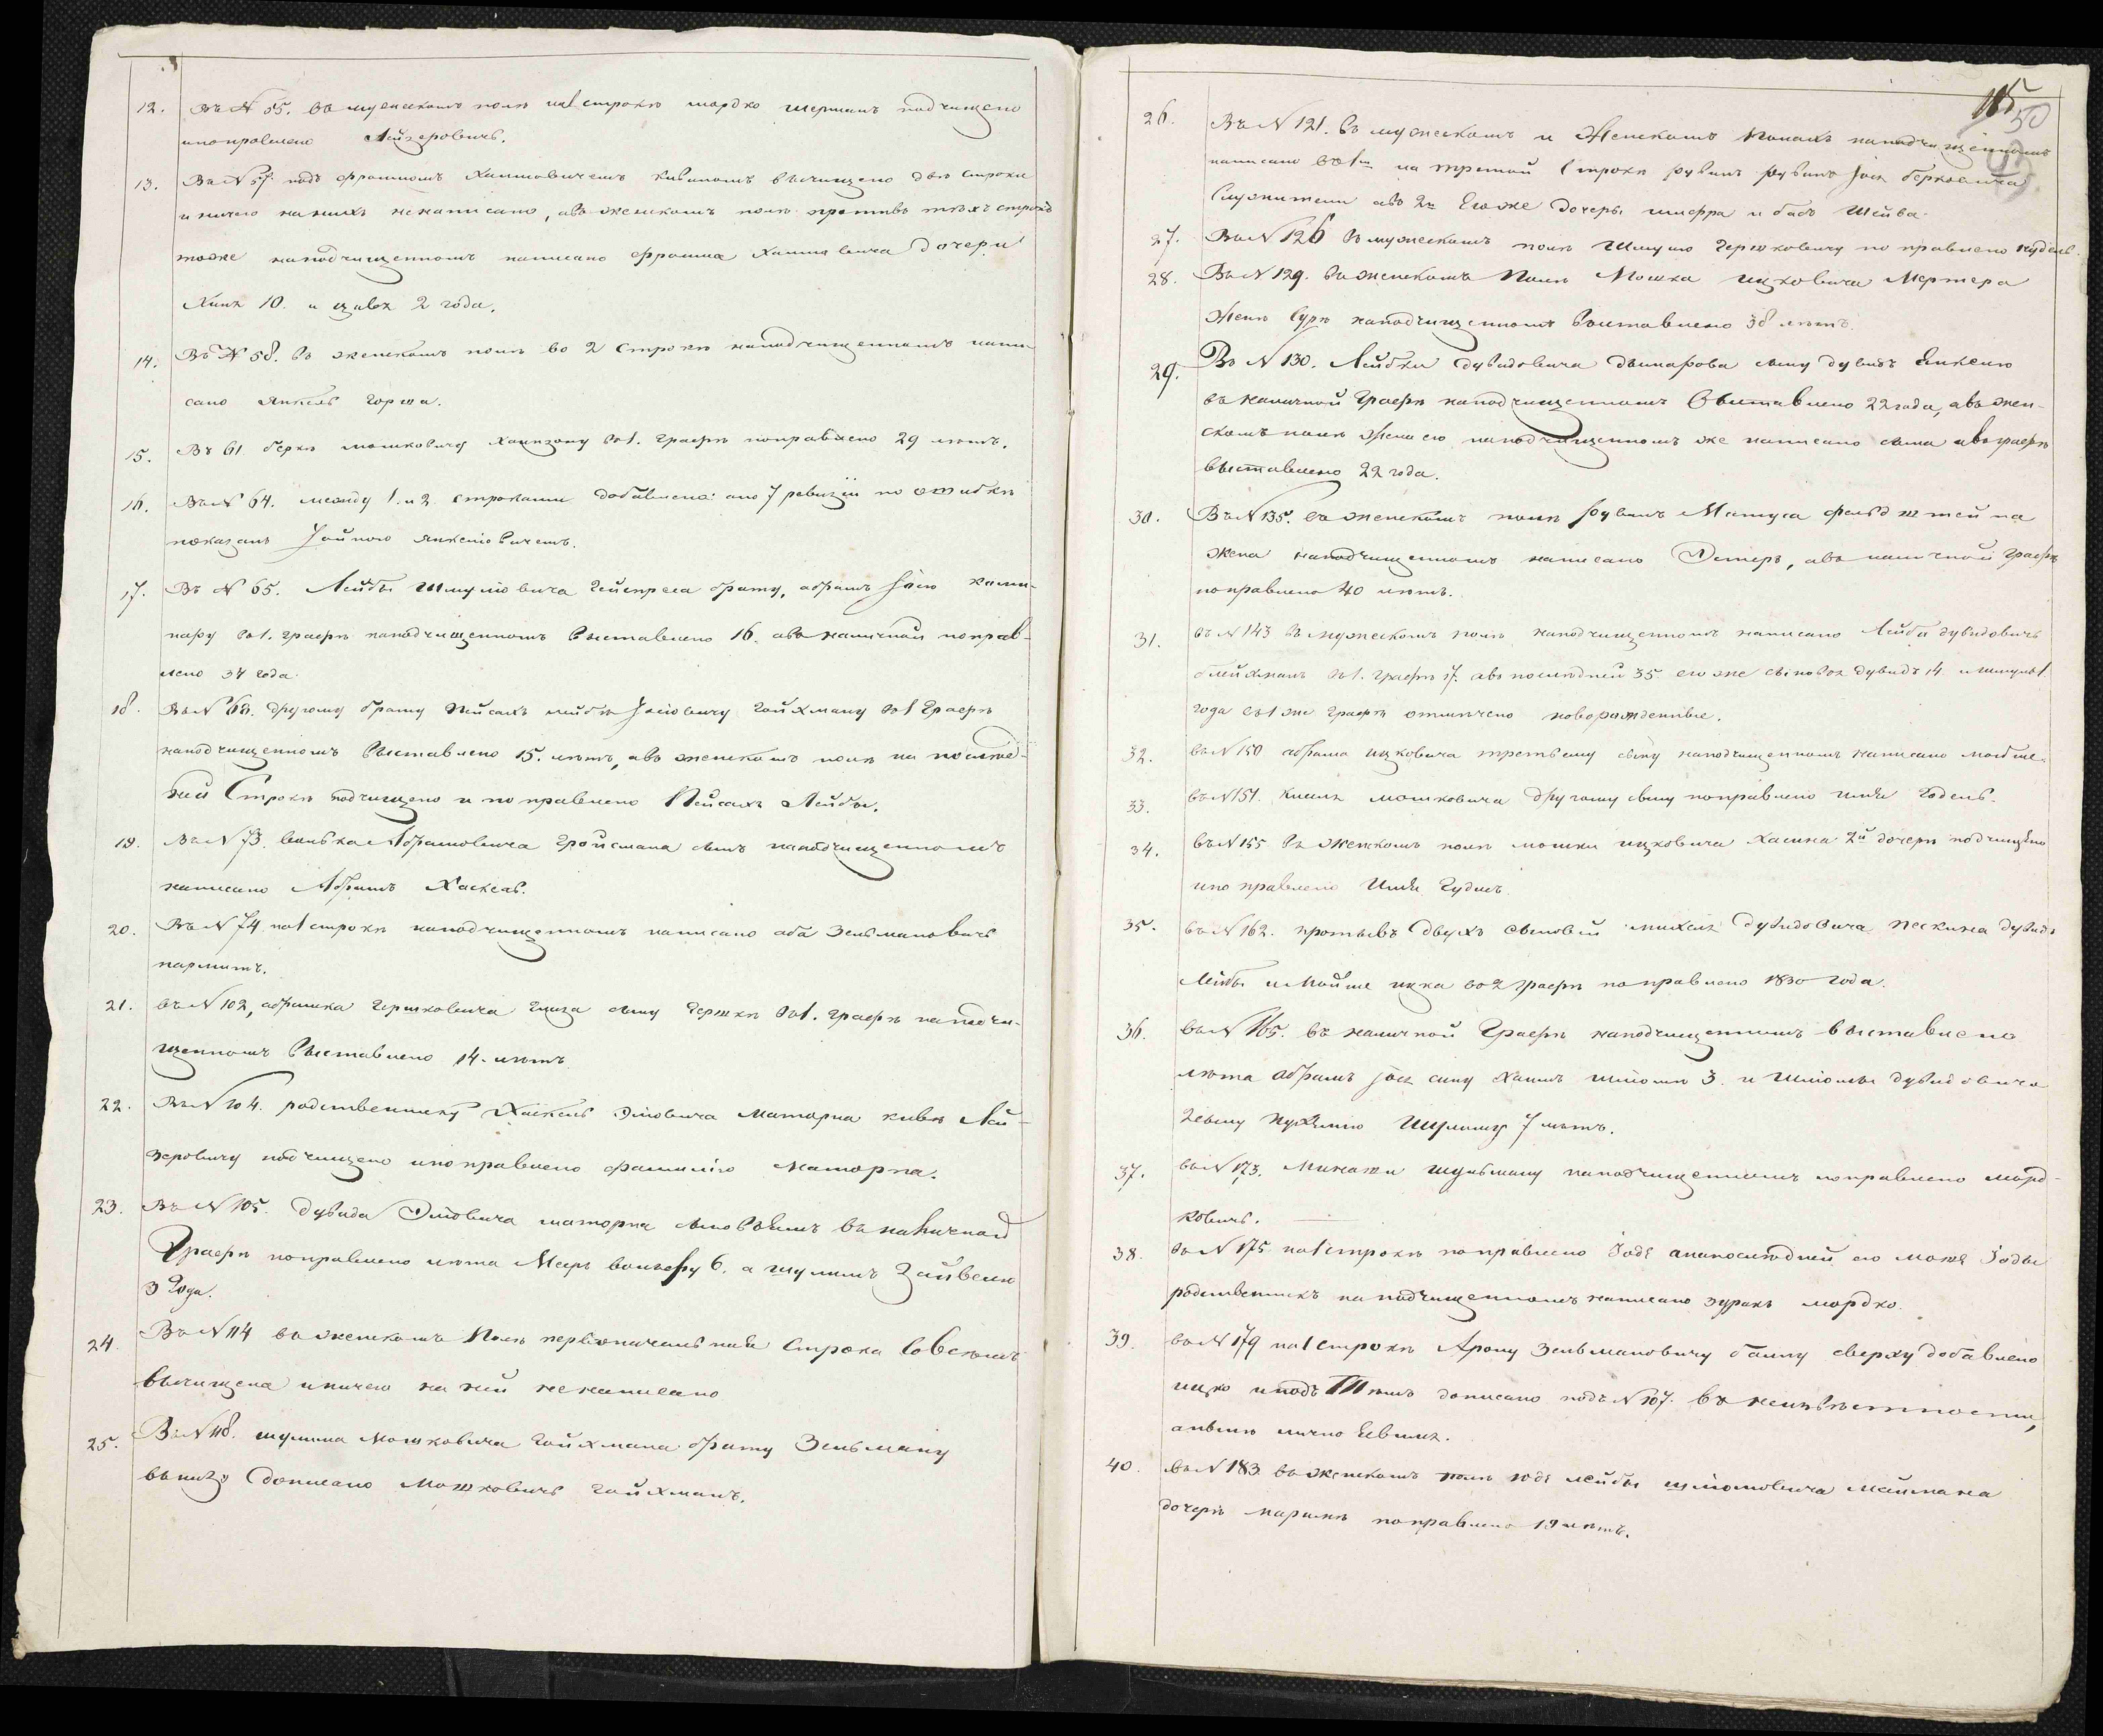 12. Въ N 55. въ мужескомъ полѣ на 1 строкѣ мордко шерманъ подчищено
и поправлено Лейзеровичъ.
13. Въ N 57. подъ фроимомъ Хаимовичемъ вычищено двѣ строки
и ничего на нихъ ненаписано, а въ женскомъ полѣ противъ тѣхъ строкъ
тоже наподчищенномъ написано фроима Хаимовича дочери
Хина 10. и 2 года.
14. Въ N 58. въ женскомъ полѣ во 2 строкѣ наподчищенномъ напи
сано янкель горша.
15. Въ 61 беркѣ мошковичу въ 1. графѣ поправлено 29 лѣтъ.
16. Въ N 64. между 1. и 2 строками добавлено: а по 7 ревизіи по ошибкѣ
показанъ янкеліовичемъ.
17. Въ N 65. Лейбы Шмуліовича брату, абрамъ Іосю
въ 1. графѣ наподчищенномъ выставлено 16. а въ наличной поправ-
лено 34 года.
18. Въ N 68. другому брату Пейсахъ лейбѣ Іосіовичу гойхману въ 1 графѣ
наподчищенномъ выставлено 15. лѣтъ, а въ женскомъ полѣ на послѣд-
ней строкѣ подчищено и поправлено Пейсахъ Лейбы.
19. Въ N 73. волька Абрамовича Гройсмана сынъ наподчищенномъ
написано Абрамъ Хаскель.
20. Въ N 74. на 1 строкѣ наподчищенномъ написано аба Зельмановичъ
21. Въ N 102, абрамка гершковича сыну гершкѣ въ 1. графѣ наподчи-
щенномъ выставлено 14. лѣтъ
22. Въ N 104. родственнику Хаскель маторна кивѣ Лей-
зеровичу подчищено и поправлено фамилію Маторна.
23. Въ N 105. дувида маторна сыновьямъ въ наличной
графѣ поправлено лѣта Меръ вольфу 6. а шулимъ Зайвелю
3 года.
24. Въ N 114 въ женскомъ полѣ первоначальная строка совсѣмъ
вычищена и ничего на ней ненаписано
25. Въ N 118. шулима Мошковича гойхмана брату Зельману
внизу дописано Мошковичъ гойхманъ.
115
50
26. Въ N 121. въ мужескомъ и Женскомъ полахъ наподчищенномъ
написано въ 1мъ на третей строкѣ рувинъ Іось берковича
а въ 2мъ Его же дочеры шифра и бася Шейва.
27. Въ N 126 въ мужескомъ полѣ Шмулю гершковичу поправлено
28. Въ N 129. въ женскомъ полѣ Мошка ицковича Мермера
женѣ сурѣ наподчищенномъ выставлено 38 лѣтъ.
29. Въ N 130. Лейбки дувидовича сыну дувидъ Янкелю
въ наличной графѣ наподчищенномъ выставлено 22 года, а въ жен-
скомъ полѣ жена его наподчищенномъ же написано а въ графѣ
выставлено 22 года.
30. Въ N 135. въ женскомъ полѣ рувинъ Матуса фельдштейна
жена наподчищенномъ написано Эстеръ, а въ наличной графѣ
поправлено 40 лѣтъ.
31. въ N 143 въ мужескомъ полѣ наподчищенномъ написано Лейба дувидовичъ
блейхманъ въ 1. графѣ 17. а въ послѣдней 35 его же сыновья дувидъ 14 и 1
года въ 1 же графѣ отмѣчено новорожденные.
32. въ N 150 абрама ицковича третьему сыну наподчищенномъ написано
33. въ N 151. мошковича другому сыну поправлено имя годель.
34. въ N 155 въ женскомъ полѣ мошки ицковича Хасина 2й дочерѣ подчищено
и поправлено имя гудись.
35. въ N 162. противъ двухъ сыновей михеля Дувидовича пескина дувидъ
Лейбы и Мойше ицка во 2 графѣ поправлено 1830 года.
36. въ N 165. въ наличной графѣ наподчищенномъ выставлено
лѣта абрамъ Іося сыну Хаимъ шліомѣ 3. и Шліомы дувидовича
2 сыну Шулиму 7 лѣтъ.
37. въ N 173. шульману наподчищенномъ поправлено морд-
ковичъ.
38. въ N 175 на 1 строкѣ поправлено Іодя а напослѣдней его Іоды
родственникъ наподчищенномъ написано мордко.
39. въ N 179 на 1 строкѣ Арону Зельмановичу сверху добавлено
ицко и подъ тѣмъ дописано подъ N 107. въ неизвѣстности,
а нынѣ лично явился.
40. въ N 183. въ женскомъ полѣ лейбы шліомовича маймана
дочерѣ марьямѣ поправлено 19 лѣтъ.